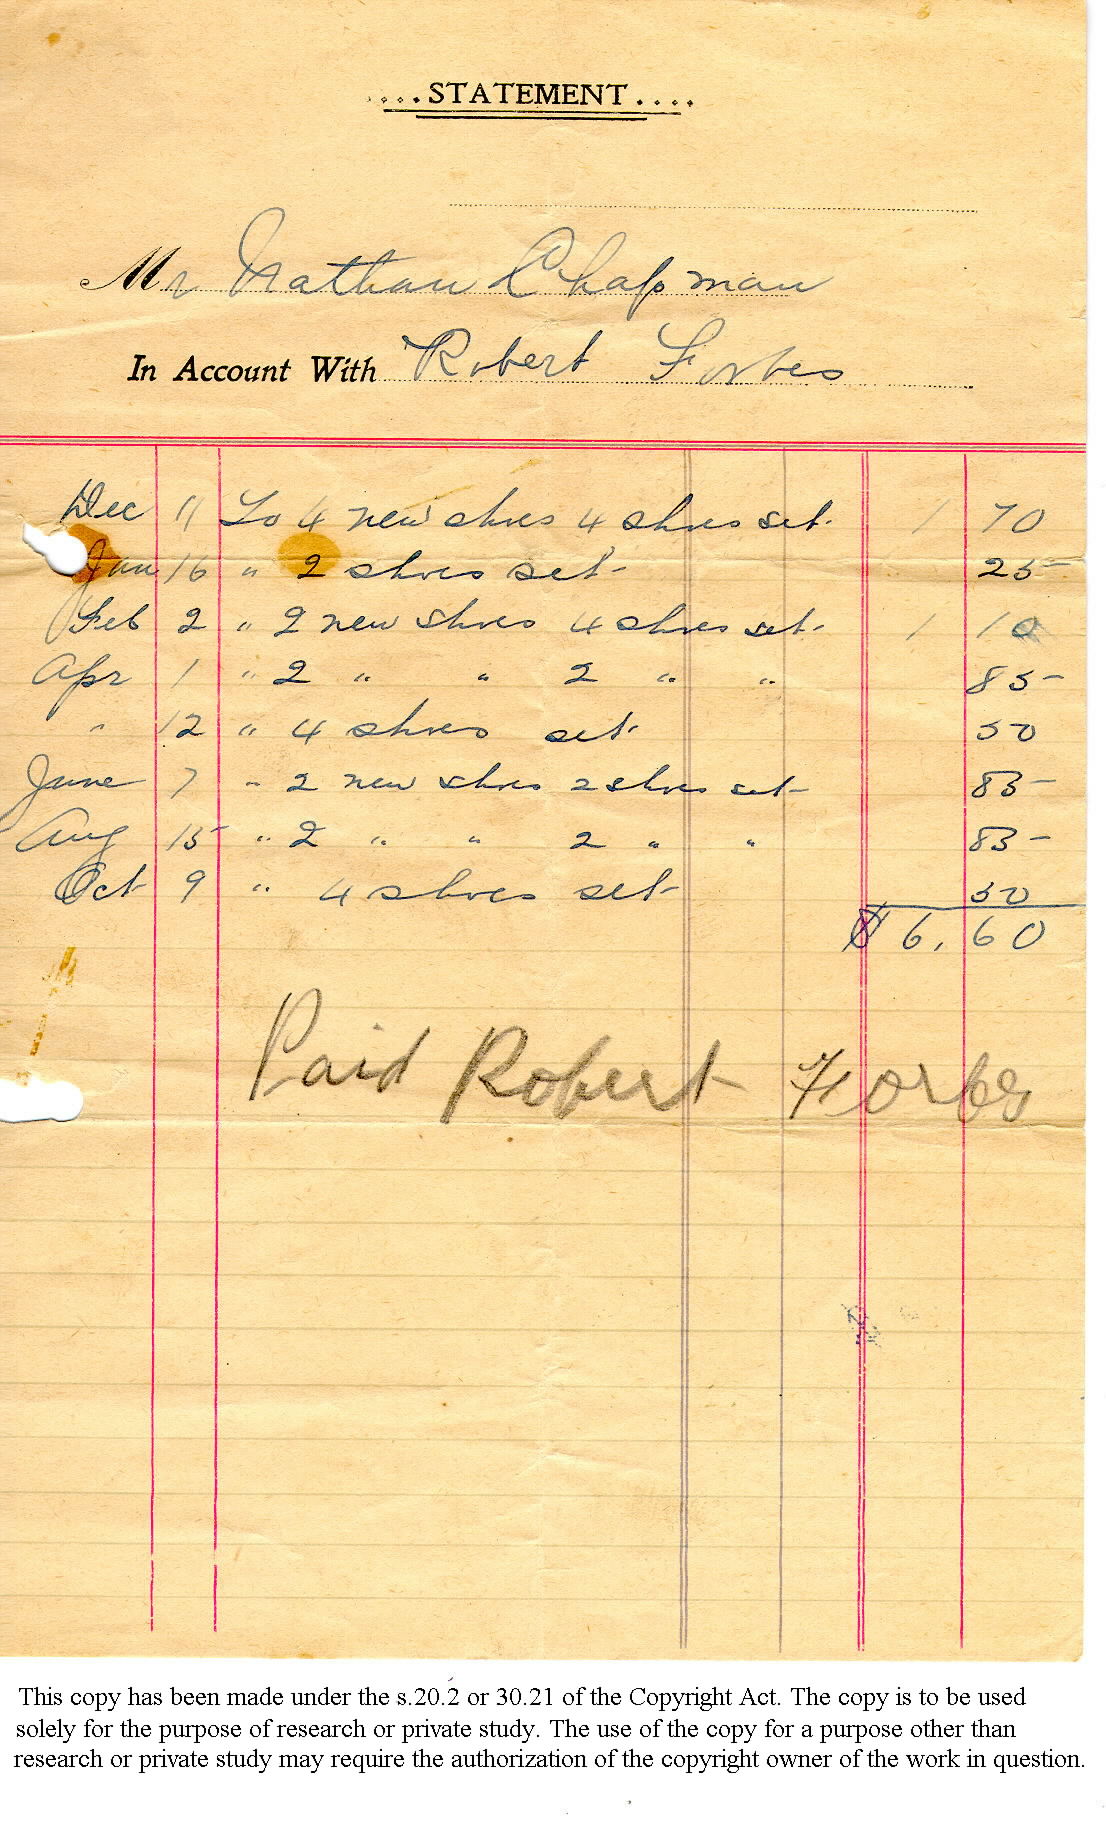 ....STATEMENT....
Mr Nathan Chapman
In Account With Robert Forbes
Dec 11 To 4 new shoes 4 shoes set. 1 70
Jan 16 " 2 shoes set 25
Feb 2 " 2 new shoes 4 shoes set. 1 10
Apr 1 " 2 " " 2 " " 85
" 12 " 4 shoes set 50
June 7 " 2 new shoes 2 shoes set 85
Aug 15 " 2 " " 2 " " 85
Oct 9 " 4 shoes set 50
$ 6.60
Paid Robert Forbes
This copy has been made under the s.20.2 or 30.21 of the Copyright Act. The copy is to be used
solely for the purpose of research or private study. The use of the copy for a purpose other than
research or private study may require the authorization of the copyright owner of the work in question.